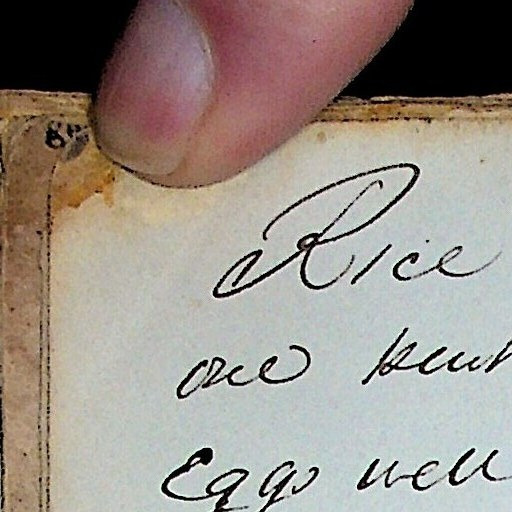 Rice
one
Eggs well